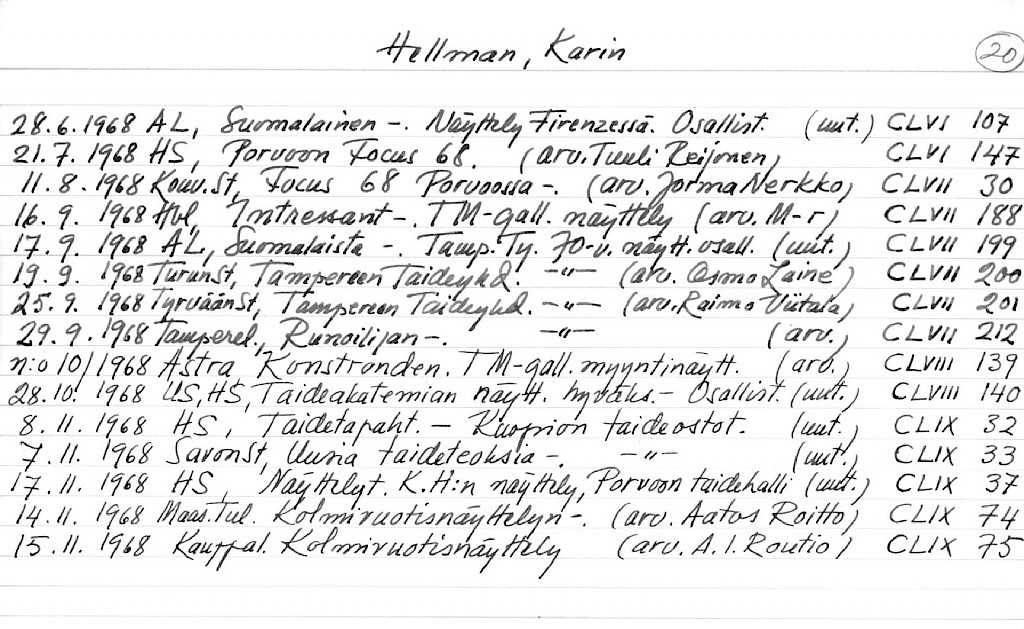 Hellman, Karin
20
28.6.1968 AL, Suomalainen -. Näyttely Firenzessä. Osallist. (uut.) CLVI 107
21.7.1968 HS, Porvoon Focus 68. (arv. Tuuli Reijonen) CLVI 147
11.8.1968 Kouv.St, Focus 68 Porvoossa -. (arv. Jorma Nerkko) CLVII 30
16.9.1968 Hbl, Intressant -. TM-gall. näyttely (arv. M-r) CLVII 188
17.9.1968 AL, Suomalaista -. Tamp.Ty. 70-v. näytt. osall. (uut.) CLVII 199
19.9.1968 TurunSt, Tampereen Taideyhd. -"- (arv. Osmo Laine) CLVII 200
25.9.1968 TyrväänSt, Tampereen Taideyhd. -"- (arv. Raimo Viitala) CLVII 201
29.9.1968 Tamperel., Runoilijan -. -"- (arv.) CLVII 212
n:o 10/1968 Astra, Konstronden. TM-gall. myyntinäytt. (arv.) CLVIII 139
28.10.1968 US, HS, Taideakatemian näytt. hyväks. - Osallist. (uut.) CLVIII 140
8.11.1968 HS, Taidetapaht. - Kuopion taideostot. (uut.) CLIX 32
7.11.1968 SavonSt, Uusia taideteoksia -. -"- (uut.) CLIX 33
17.11.1968 HS, Näyttelyt. K.H:n näyttely, Porvoon taidehalli (uut.) CLIX 37
14.11.1968 Maas.Tul. Kolmivuotisnäyttelyn -. (arv. Aatos Roitto) CLIX 74
15.11.1968 Kauppal. Kolmivuotisnäyttely (arv. A.I. Routio) CLIX 75